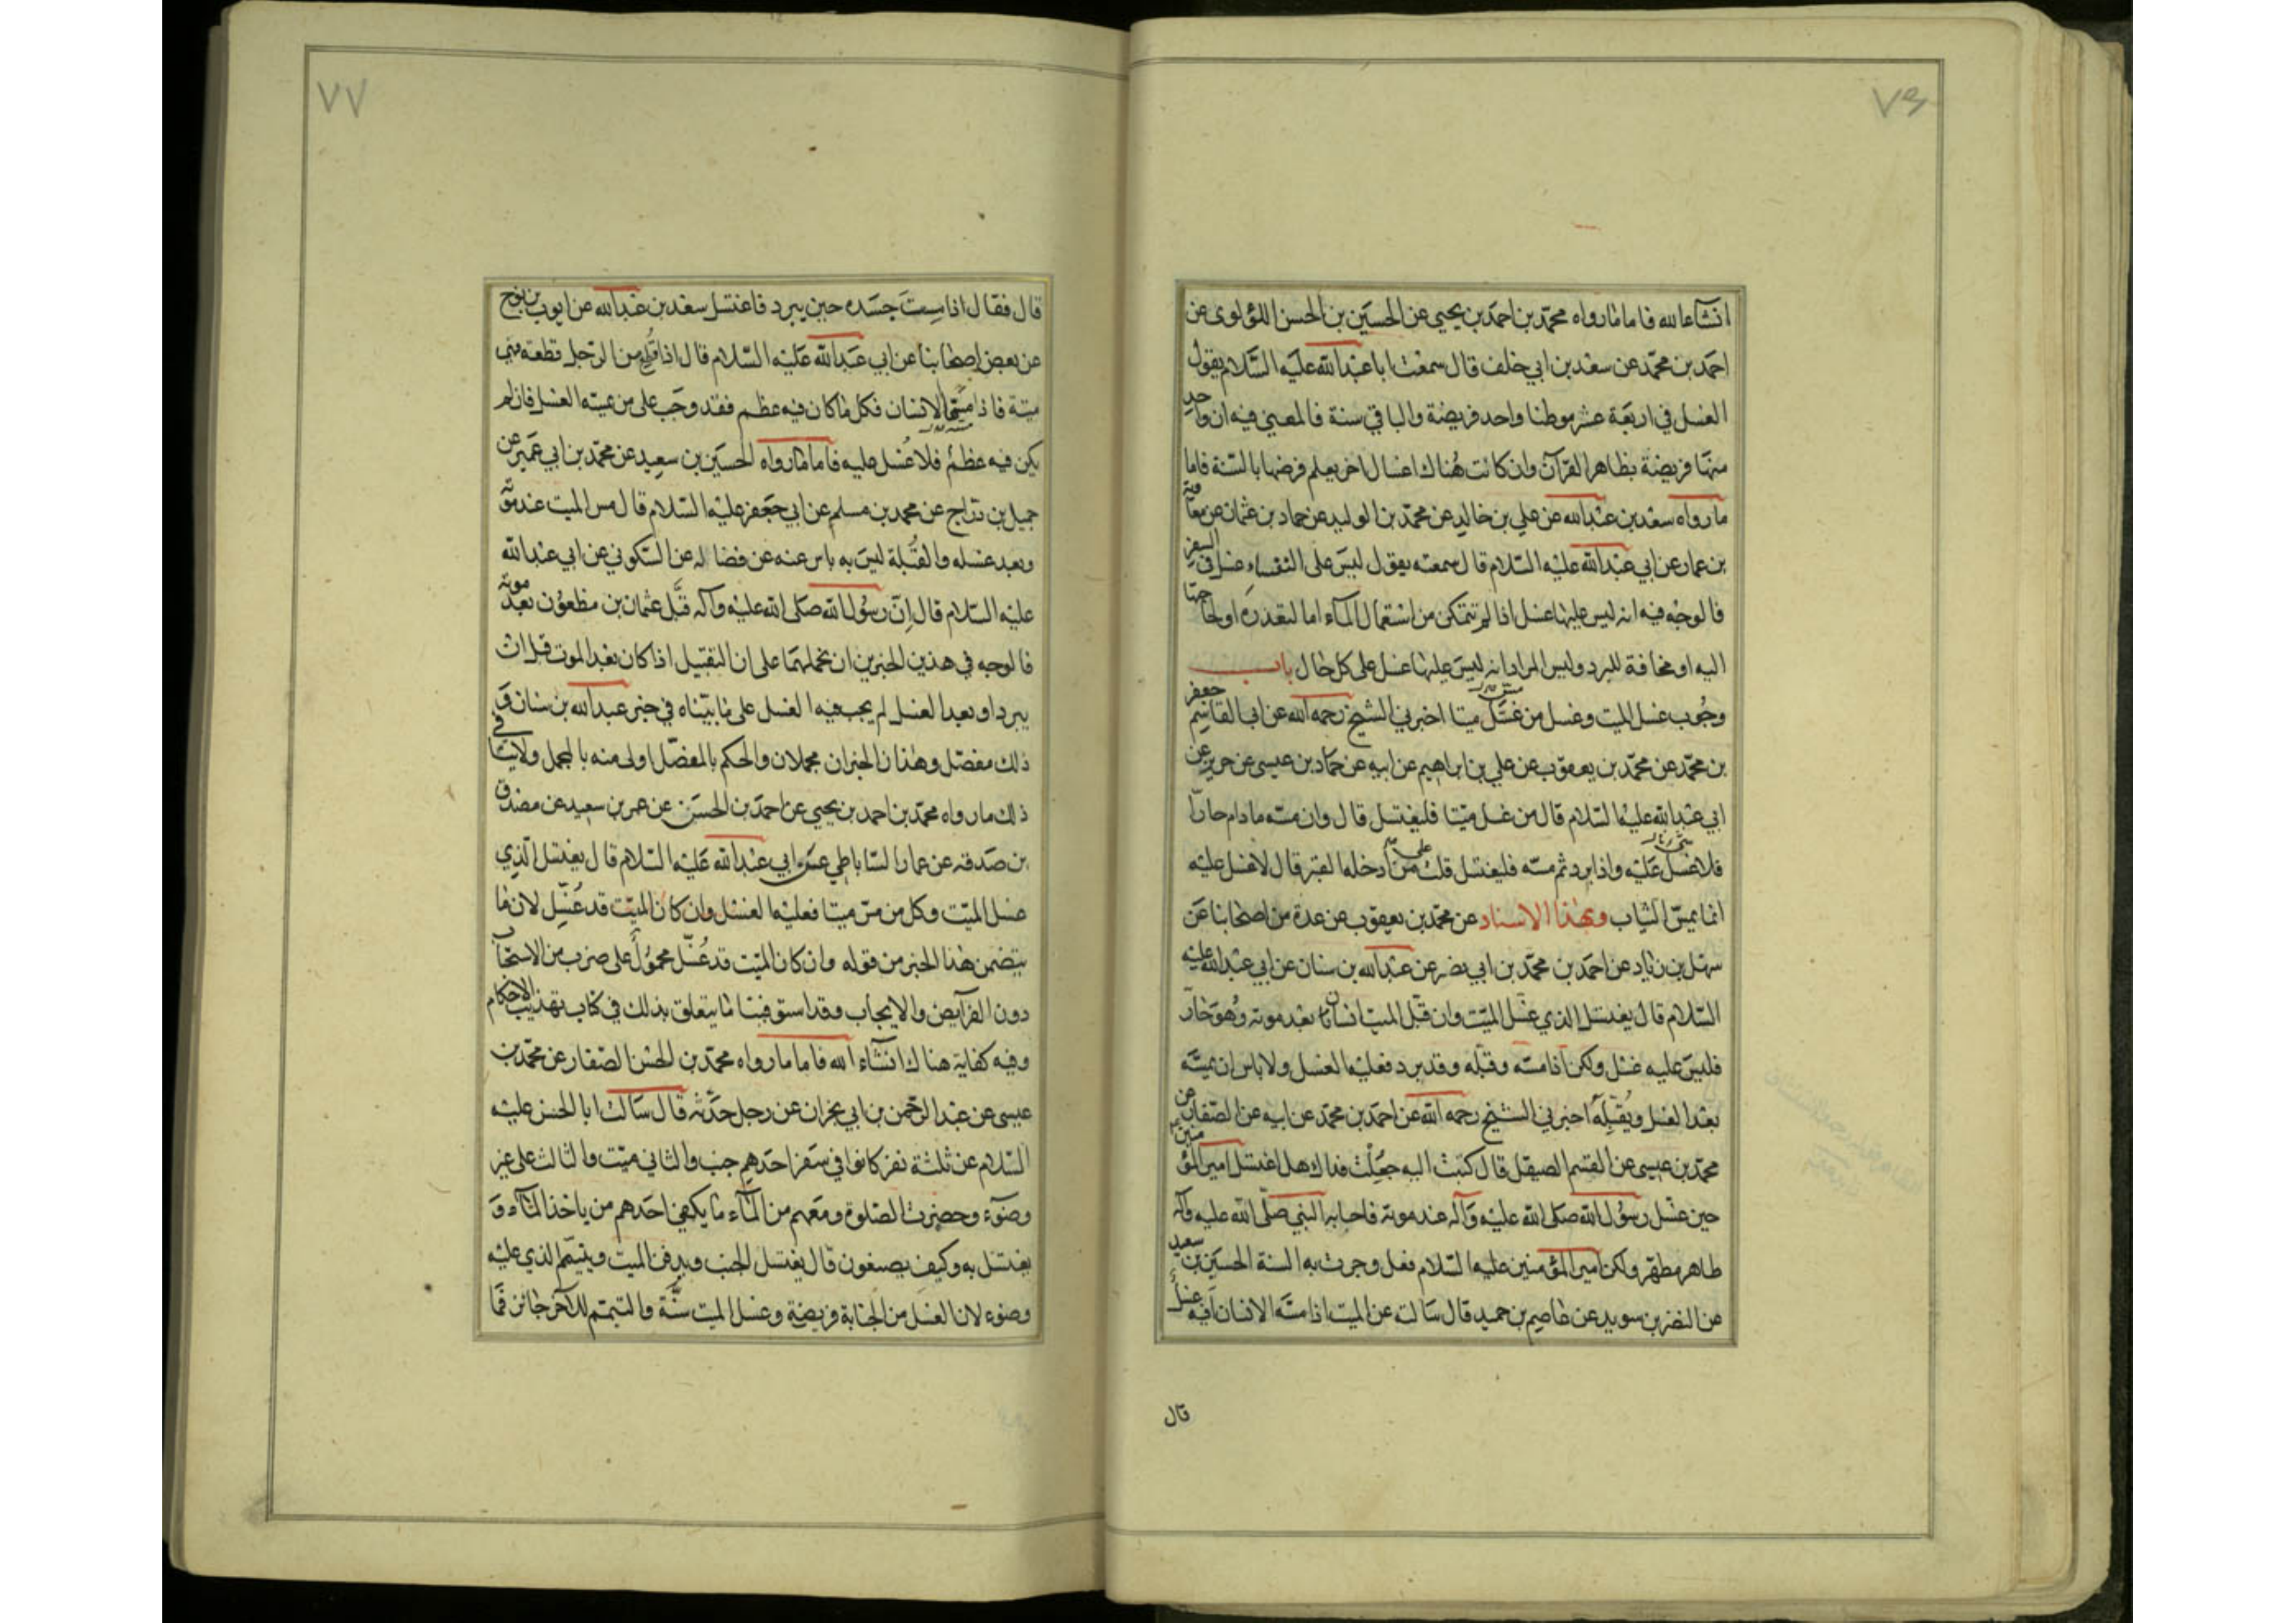 ٧٦
انشآءالله فاما مارواه محمّد بن احمد بن يحيى عن الحسين بن الحسن اللؤلوى عن
احمد بن محمّد عن سعد بن ابي خلف قال سمعت اباعبدالله عليه السّلام يقول
الغسل في اربعة عشر موطنا واحد فريضة والباقي سنة فالمعني فيه ان واحد
منها فريضة بظاهر القرآن وان كانت هناك اغسال اخر يعلم فرضها بالسّنة فاما
مارواه سعد بن عبدالله عن علي بن خالد عن محمّد بن الوليد عن حماد بن عثمان عن معاوية
بن عمار عن ابي عبدالله عليه السّلام قال سمعته يقول ليس على النفساء غسل في السفر
فالوجه فيه انه ليس عليها غسل اذا لم تتمكن من استعمال المآء اما لتعذره او لحاجتها
اليه او مخافة البرد وليس المراد انه ليس عليها غسل على كل حال باب
وجوب غسل الميت وغسل من غسّل ميتا اخبرني الشيخ رحمه الله عن ابي القاسم جعفر
بن محمّد عن محمّد بن يعقوب عن علي بن ابراهيم عن ابيه عن حماد بن عيسى عن حريز عن
ابي عبدالله عليه السّلام قال من غسل ميّتا فليغتسل قال وان مسّه مادام حارّا
فلاغسل عليه واذا برد ثم مسّه فليغتسل قلت من ادخله القبر قال لاغسل عليه
انما يمسّ الثياب وبهذا الاسناد عن محمّد بن يعقوب عن عدة من اصحابنا عن
سهل بن زياد عن احمد بن محمّد بن ابي نصر عن عبدالله بن سنان عن ابي عبدالله عليه
السّلام قال يغتسل الذي غسّل الميّت وان قبّل الميت انسان بعد موته وهو حارّ
فليس عليه غسل ولكن اذا مسّه وقبّله وقد برد فعليه الغسل ولا باس ان يمسّه
بعد الغسل ويقبّله اخبرني الشيخ رحمه الله عن احمد بن محمّد عن ابيه عن الصفار عن
محمّد بن عيسى عن القسم الصيقل قال كتبت اليه جعلت فداك هل اغتسل امير المؤمنين
حين غسّل رسول الله صلى الله عليه وآله عند موته فاجابه النبي صلّى الله عليه وآله
طاهر مطهّر ولكن امير المؤمنين عليه السّلام فعل وجرت به السنة الحسين بن سعيد
عن النضر بن سويد عن عاصم بن حميد قال سالته عن الميت اذا مسّه الانسان أفيه غسل
قال
٧٧
قال فقال اذا مسست جسده حين يبرد فاغتسل سعد بن عبدالله عن ايوب بن نوح
عن بعض اصحابنا عن ابي عبدالله عليه السّلام قال اذا قطع من الرّجل قطعة فهي
ميتة فاذا مسّها الانسان فكل ماكان فيه عظم فقد وجب على من يمسّه الغسل فان لم
يكن فيه عظم فلا غسل عليه فاما مارواه الحسين بن سعيد عن محمّد بن ابي عمير عن
جميل بن درّاج عن محمد بن مسلم عن ابي جعفر عليه السّلام قال مس الميت عند موته
وبعد غسله والقبلة ليس به باس عنه عن فضاله عن السكوني عن ابي عبدالله
عليه السّلام قال ان رسول الله صلى الله عليه وآله قبّل عثمان بن مظعون بعد موته
فالوجه في هذين الخبرين ان نحملهما على ان التقبيل اذا كان بعد الموت قبل ان
يبرد او بعد الغسل لم يجب فيه الغسل على ما بيّناه في خبر عبدالله بن سنان و
ذلك مفصّل وهذان الخبران مجملان والحكم بالمفصّل اولى منه بالمجمل ولاينافي
ذلك مارواه محمّد بن احمد بن يحيى عن احمد بن الحسن عن عمر بن سعيد عن مصدق
بن صدقه عن عمار السّاباطي عن ابي عبدالله عليه السّلام قال يغتسل الّذي
غسل الميّت وكل من مسّ ميتا فعليه الغسل وان كان الميّت قد غسّل لان ما
يتضمن هذا الخبر من قوله وان كان الميّت قد غسّل محمول على ضرب من الاستحباب
دون الفرآيض والايجاب وقد استوفينا مايتعلق بذلك في كتاب تهذيب الاحكام
وفيه كفاية هناك انشآء الله فاما مارواه محمّد بن الحسن الصفار عن محمّد بن
عيسى عن عبد الرّحمن بن ابي نجران عن رجل حدّثه قال سالت ابا الحسن عليه
السّلام عن ثلثة نفر كانوا في سفر احدهم جنب والثاني ميّت والثالث على غير
وضوء وحضرت الصلوة ومعهم من المآء مايكفي احدهم من ياخذ المآء و
يغتسل به وكيف يصنعون قال يغتسل الجنب ويدفن الميت ويتيمّم الذي عليه
وضوء لان الغسل من الجنابة فريضة وغسل الميت سنّة والتيمّم للآخر جائز فما